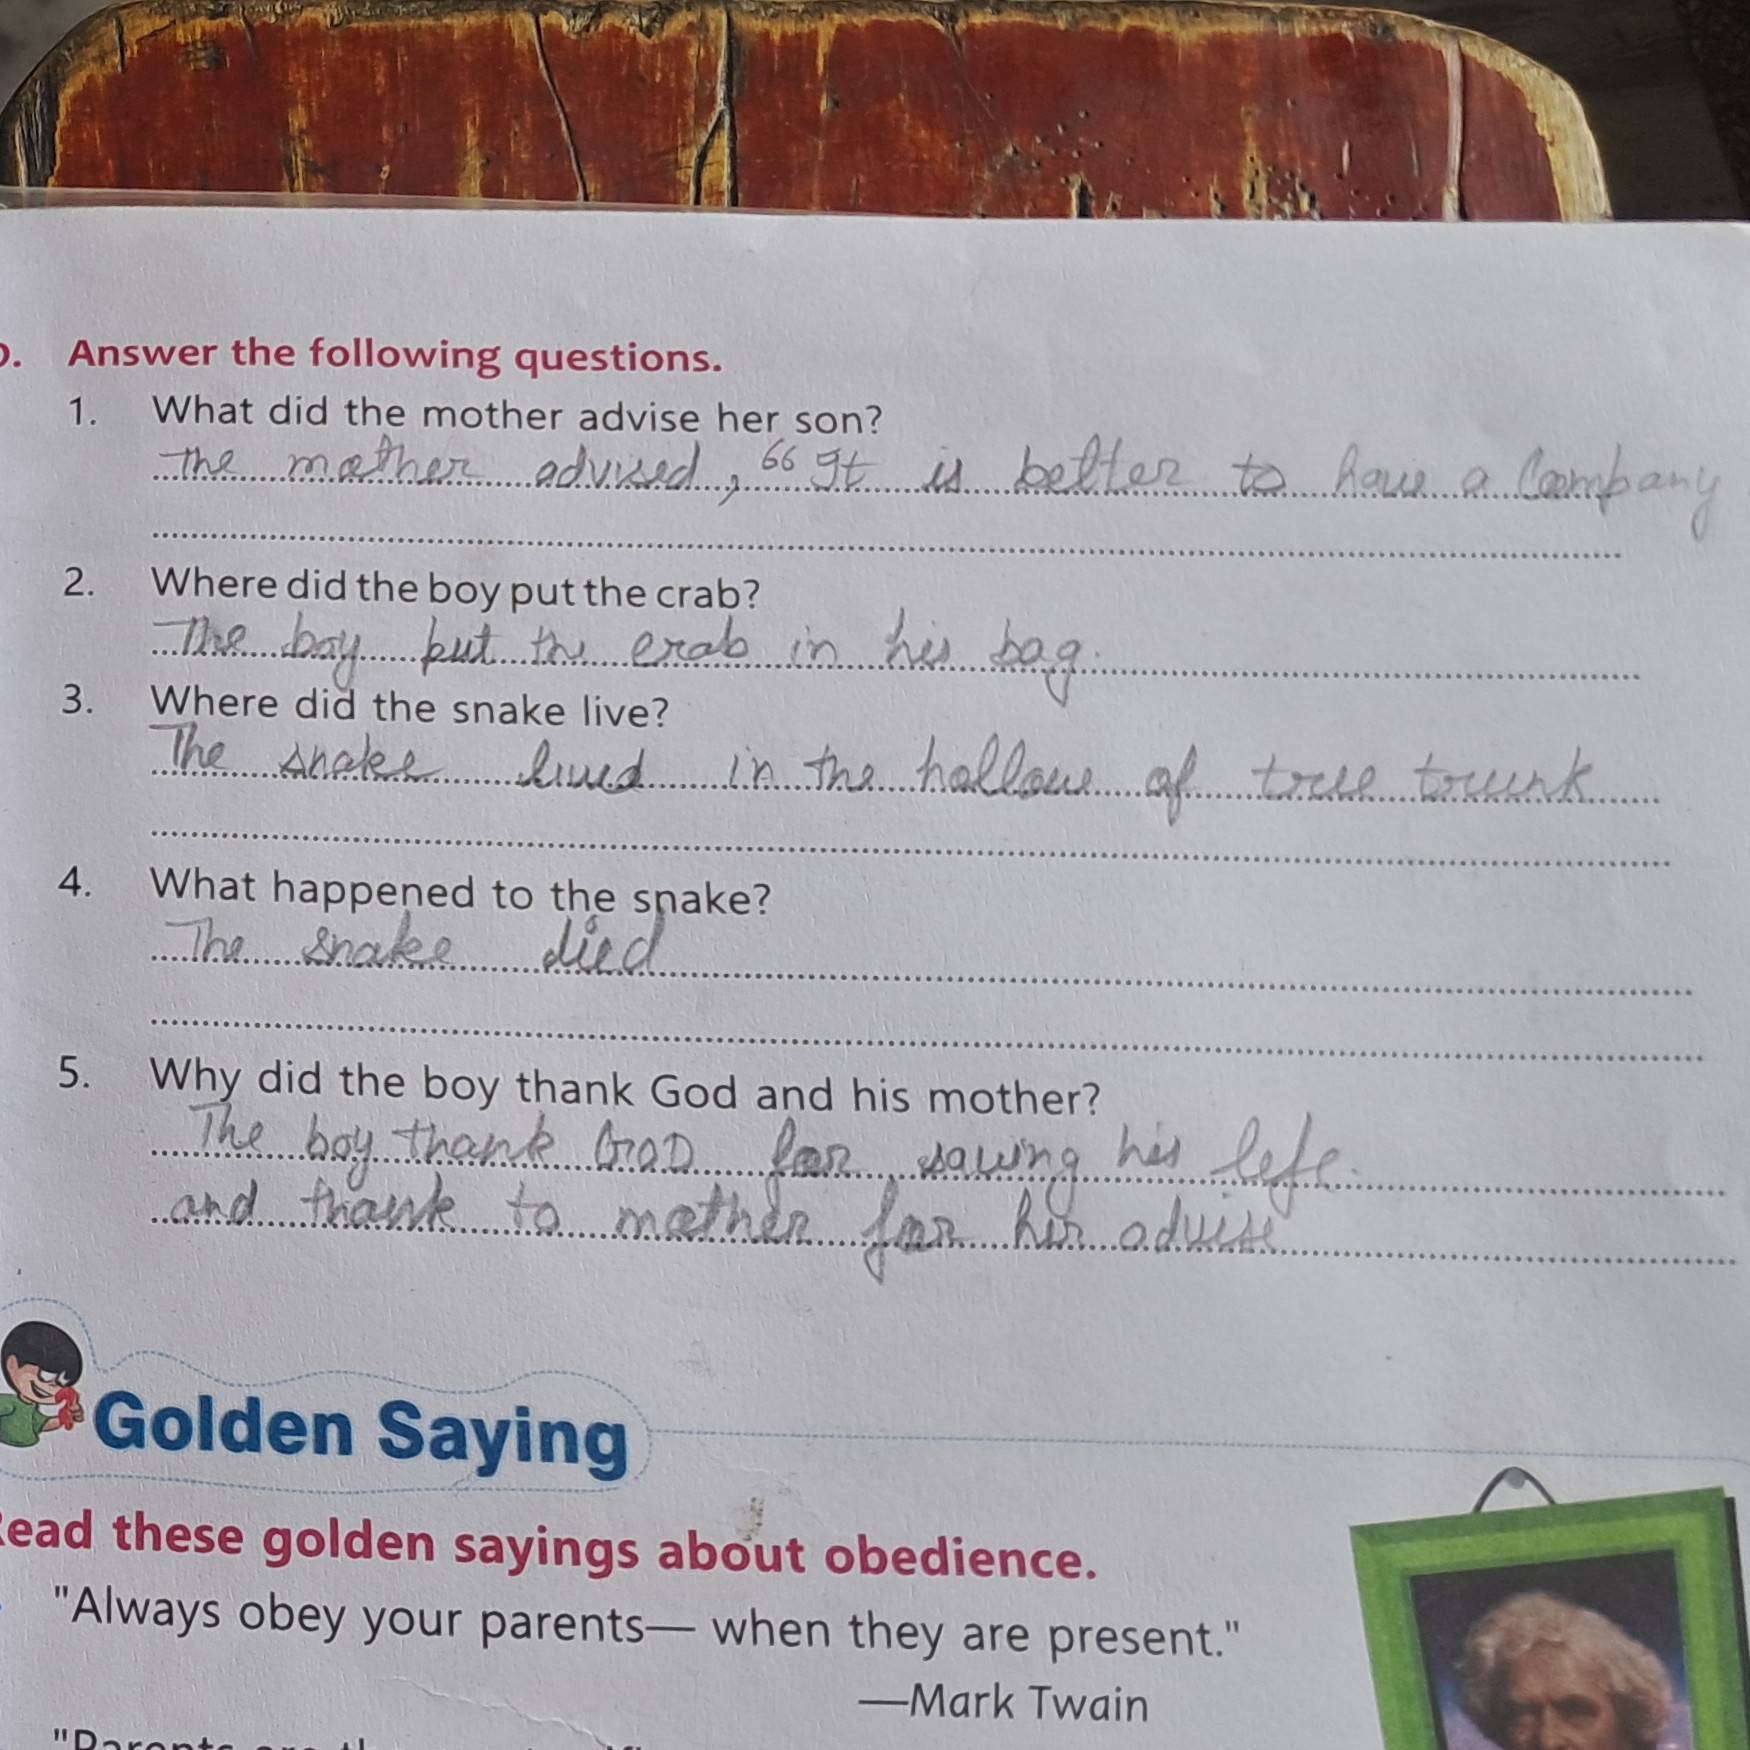 . Answer the following questions.
1. What did the mother advise her son?
The mother advised, “It is better to have a Company
2. Where did the boy put the crab?
The boy but the crab in his bag.
3. Where did the snake live?
The snake lived in the hollow of tree trunk
4. What happened to the snake?
The snake died
5. Why did the boy thank God and his mother?
The boy thank GOD for saving his life.
and thank to mother for her advise
Golden Saying
ead these golden sayings about obedience.
"Always obey your parents— when they are present."
—Mark Twain
"Parents are